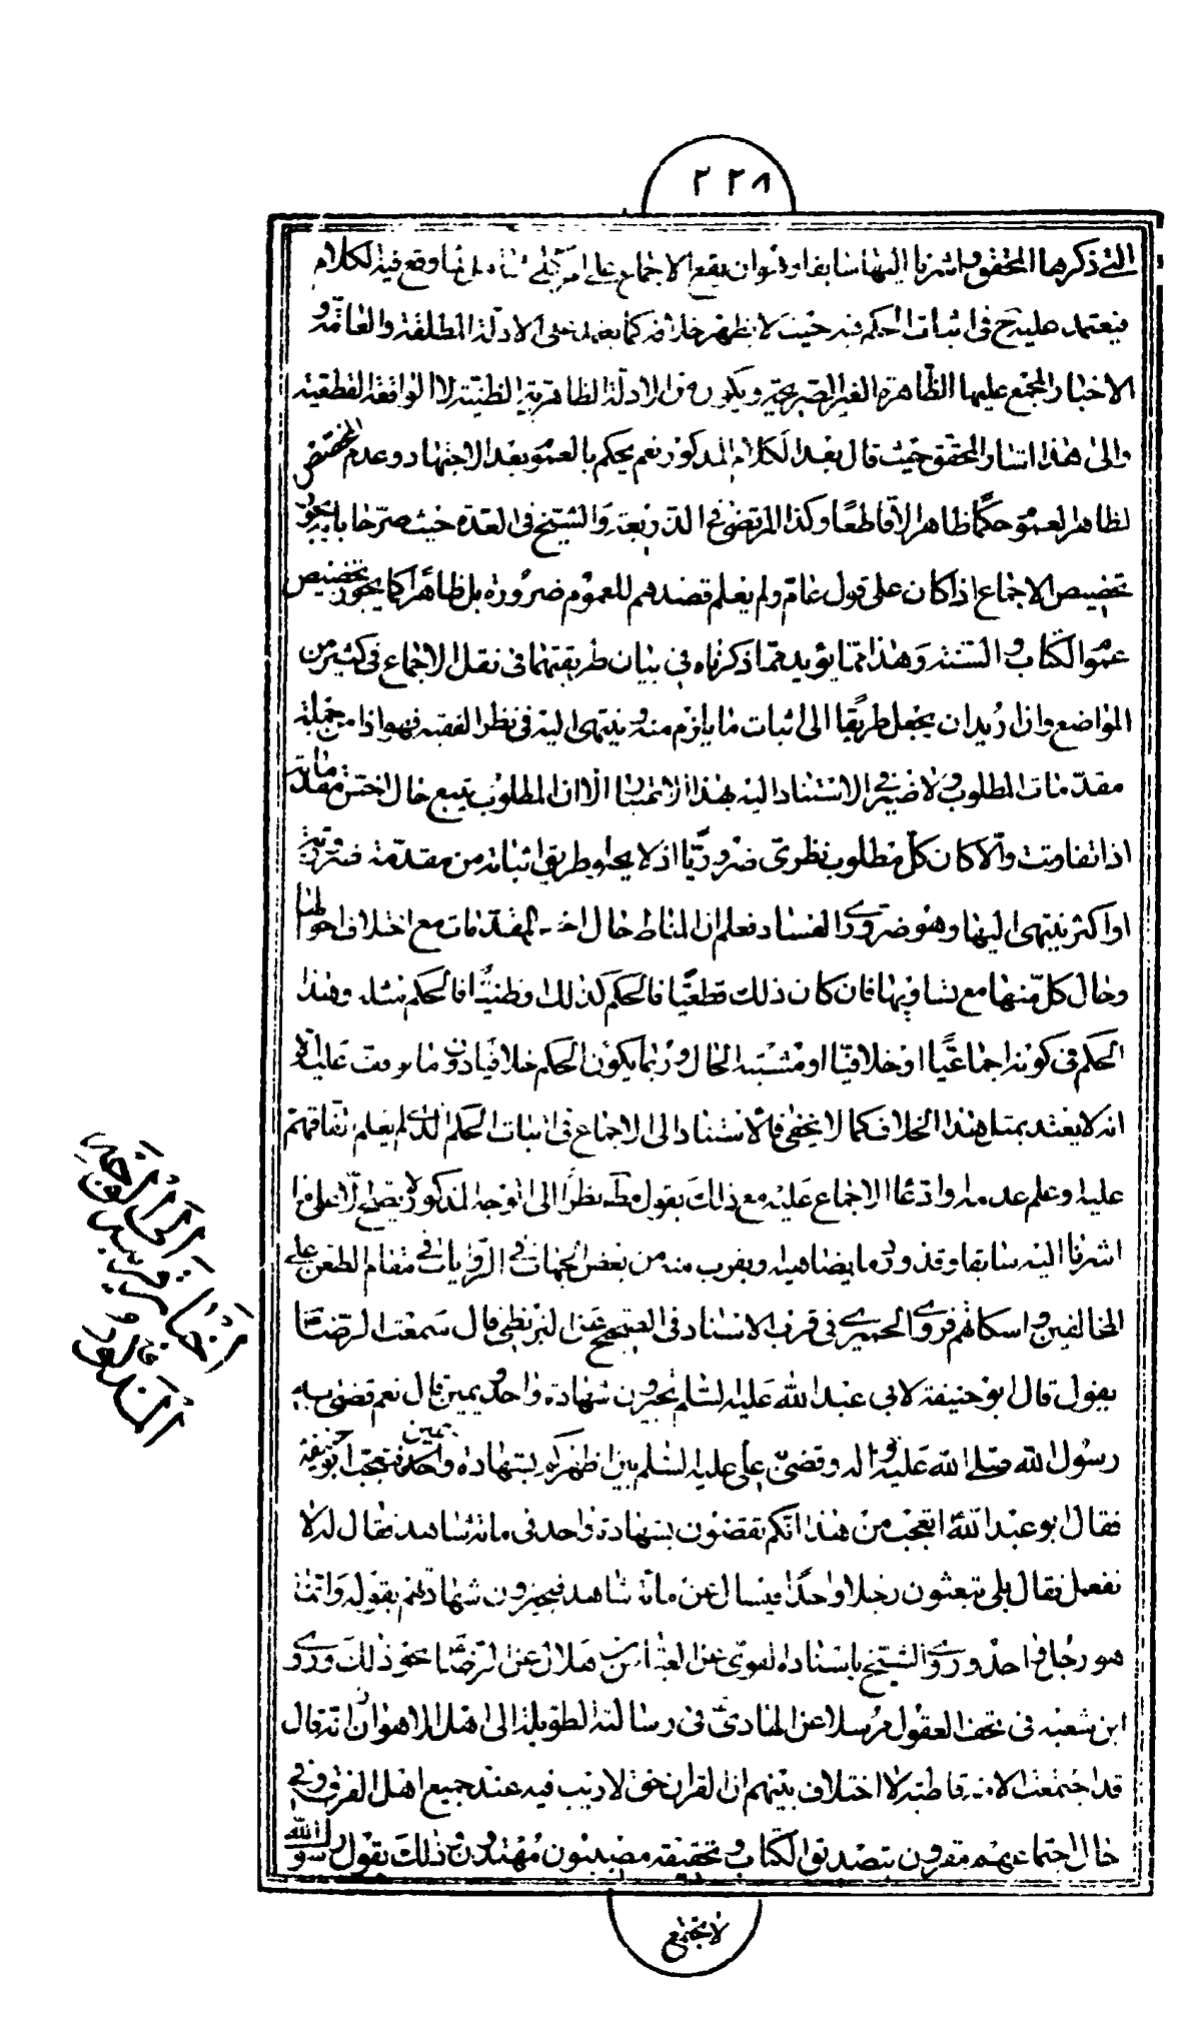 ٢٢٨
التي ذكرها المحقق واشرنا اليها سابقا وهو ان يقع الاجماع على امر كلي فيما وقع فيه الكلام
فيعتمد عليه ح في اثبات الحكم فيه حيث لا يظهر خلافه كما يعتمد على الادلة المطلقة والعامة و
الاخبار المجمع عليها الظاهرة الغير الصريحة ويكون من الادلة الظاهرية الظنية لا الواقعة القطعية
والى هذا اشار المحقق حيث قال بعد الكلام المذكور نعم يحكم بالعموم بعد الاجتهاد وعدم المخصص
لظاهر العموم حكما ظاهرا لا قاطعا وكذا المرتضى في الذريعة والشيخ في العدة حيث صرحا بانه يجوز
تخصيص الاجماع اذا كان على قول عام ولم يعلم قصدهم للعموم ضرورة بل ظاهرا كما يجوز تخصيص
عموم الكتاب والسنة وهذا مما يؤيد ما ذكرناه في بيان طريقتهما في نقل الاجماع في كثير من
المواضع وان اريد ان يجعل طريقا الى اثبات ما يلزم منه وينتهى اليه في نظر الفقيه فهو اذا من جملة
مقدمات المطلوب ولا ضير في الاستناد اليه بهذا الاعتبار الا ان المطلوب يتبع حال اخس مقدماته
اذا تفاوتت والا كان كل مطلوب نظري ضروريا اذ لا يخلو طريق اثباته من مقدمة ضرورية
او اكثر ينتهى اليها وهو ضروري الفساد فعلم ان المناط حال اخس المقدمات مع اختلاف احوالها
وحال كل منها مع تساويها فان كان ذلك قطعيا فالحكم كذلك وظنيا فالحكم مثله وهذا
الحكم في كونه اجماعيا او خلافيا او مشتبه الحال وربما يكون الحكم خلافيا دون ما توقف عليه الا
انه لا يعتد بمثل هذا الخلاف كما لا يخفى فالاستناد الى الاجماع في اثبات الحكم الذي لم يعلم اتفاقهم
عليه وعلم عدمه وادعاء الاجماع عليه مع ذلك بقول مط نظرا الى الوجه المذكور لا يصح الا على ما
اشرنا اليه سابقا وقد ورد ما يضاهيه ويقرب منه من بعض الجهات في الروايات في مقام الطعن على
المخالفين واسكاتهم فروى الحميري في قرب الاسناد في الصحيح عن البزنطي قال سمعت الرضا ع
يقول قال ابو حنيفة لابي عبد الله عليه السلم تجيزون شهادة واحد ويمين قال نعم قضى به
رسول الله صلى الله عليه واله وقضى به علي عليه السلم بين اظهركم بشهادة واحد ويمين فتعجب ابو حنيفة
فقال ابو عبد الله ع اتعجب من هذا انكم تقضون بشهادة واحد في مائة شاهد فقال له لا
نفعل فقال بلى تبعثون رجلا واحدا فيسال عن مائة شاهد فتجيزون شهادتهم بقوله وانما
هو رجل واحد وروى الشيخ باسناده القوي عن العباس بن هلال عن الرضا ع نحو ذلك وروى
ابن شعبه في تحف العقول مرسلا عن الهادي ع في رسالته الطويلة الى اهل الاهواز انه قال
قد اجتمعت الامة قاطبة لا اختلاف بينهم ان القران حق لا ريب فيه عند جميع اهل الفرق وفي
حال اجتماعهم مقرون بتصديق الكتاب وتحقيقه مصيبون مهتدون وذلك بقول رسول الله
لا تجتمع
اشار الى الوجه
المذكور